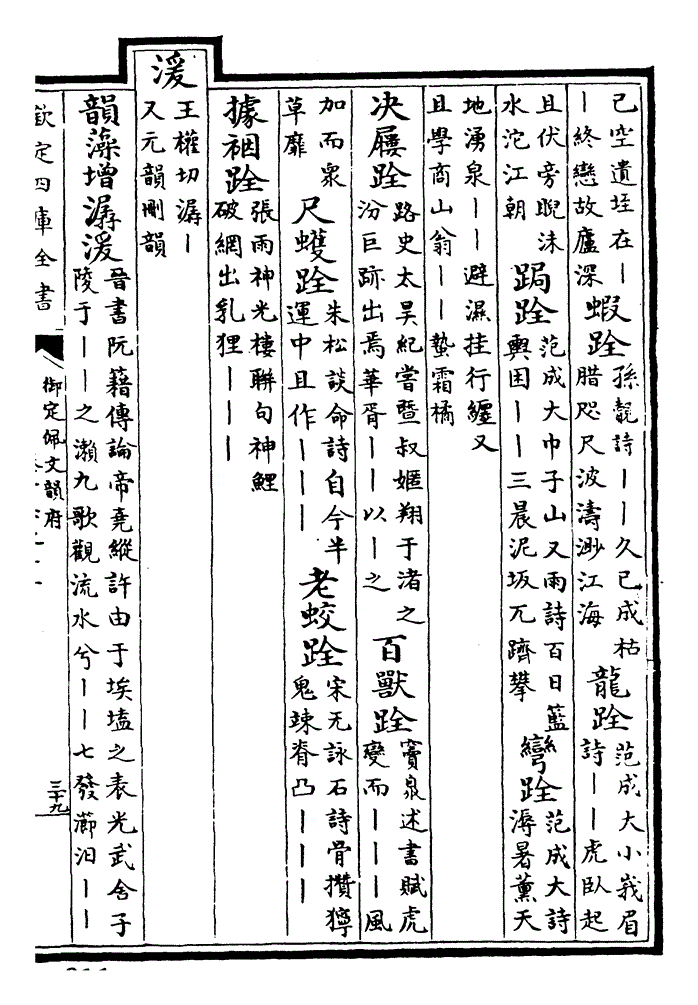 已空遺垤在丨
丨終戀故廬深
蝦跧
孫覿詩丨丨久已成枯
腊咫尺波濤渺江海
龍跧
范成大小峩眉
詩丨丨虎臥起
且伏旁睨沫
水沱江朝
跼跧
范成大巾子山又雨詩百日籃
輿困丨丨三晨泥坂兀躋攀
彎跧
范成大詩
溽暑薰天
地湧泉丨丨避濕挂行纏又
且學商山翁丨丨蟄霜橘
决屨跧
路史太昊紀嘗暨叔嫟翔于渚之
汾巨跡出焉華胥丨丨以丨之
百獸跧
竇臮述書賦虎
變而丨丨丨風
加而衆
草靡
尺蠖跧
朱松談命詩自今半
運中且作丨丨丨
老蛟跧
宋无詠石詩骨攢獰
鬼竦脊凸丨丨丨
據裀跧
張雨神光樓聯句神鯉
破網出乳狸丨丨丨
湲
王權切潺丨
又元韻刪韻
韻藻增潺湲
晉書阮籍傳論帝堯縱許由于埃壒之表光武舍子
陵于丨丨之瀨九歌觀流水兮丨丨七發瀄汨丨丨
欽定四庫全書
御定佩文韻府
三十九